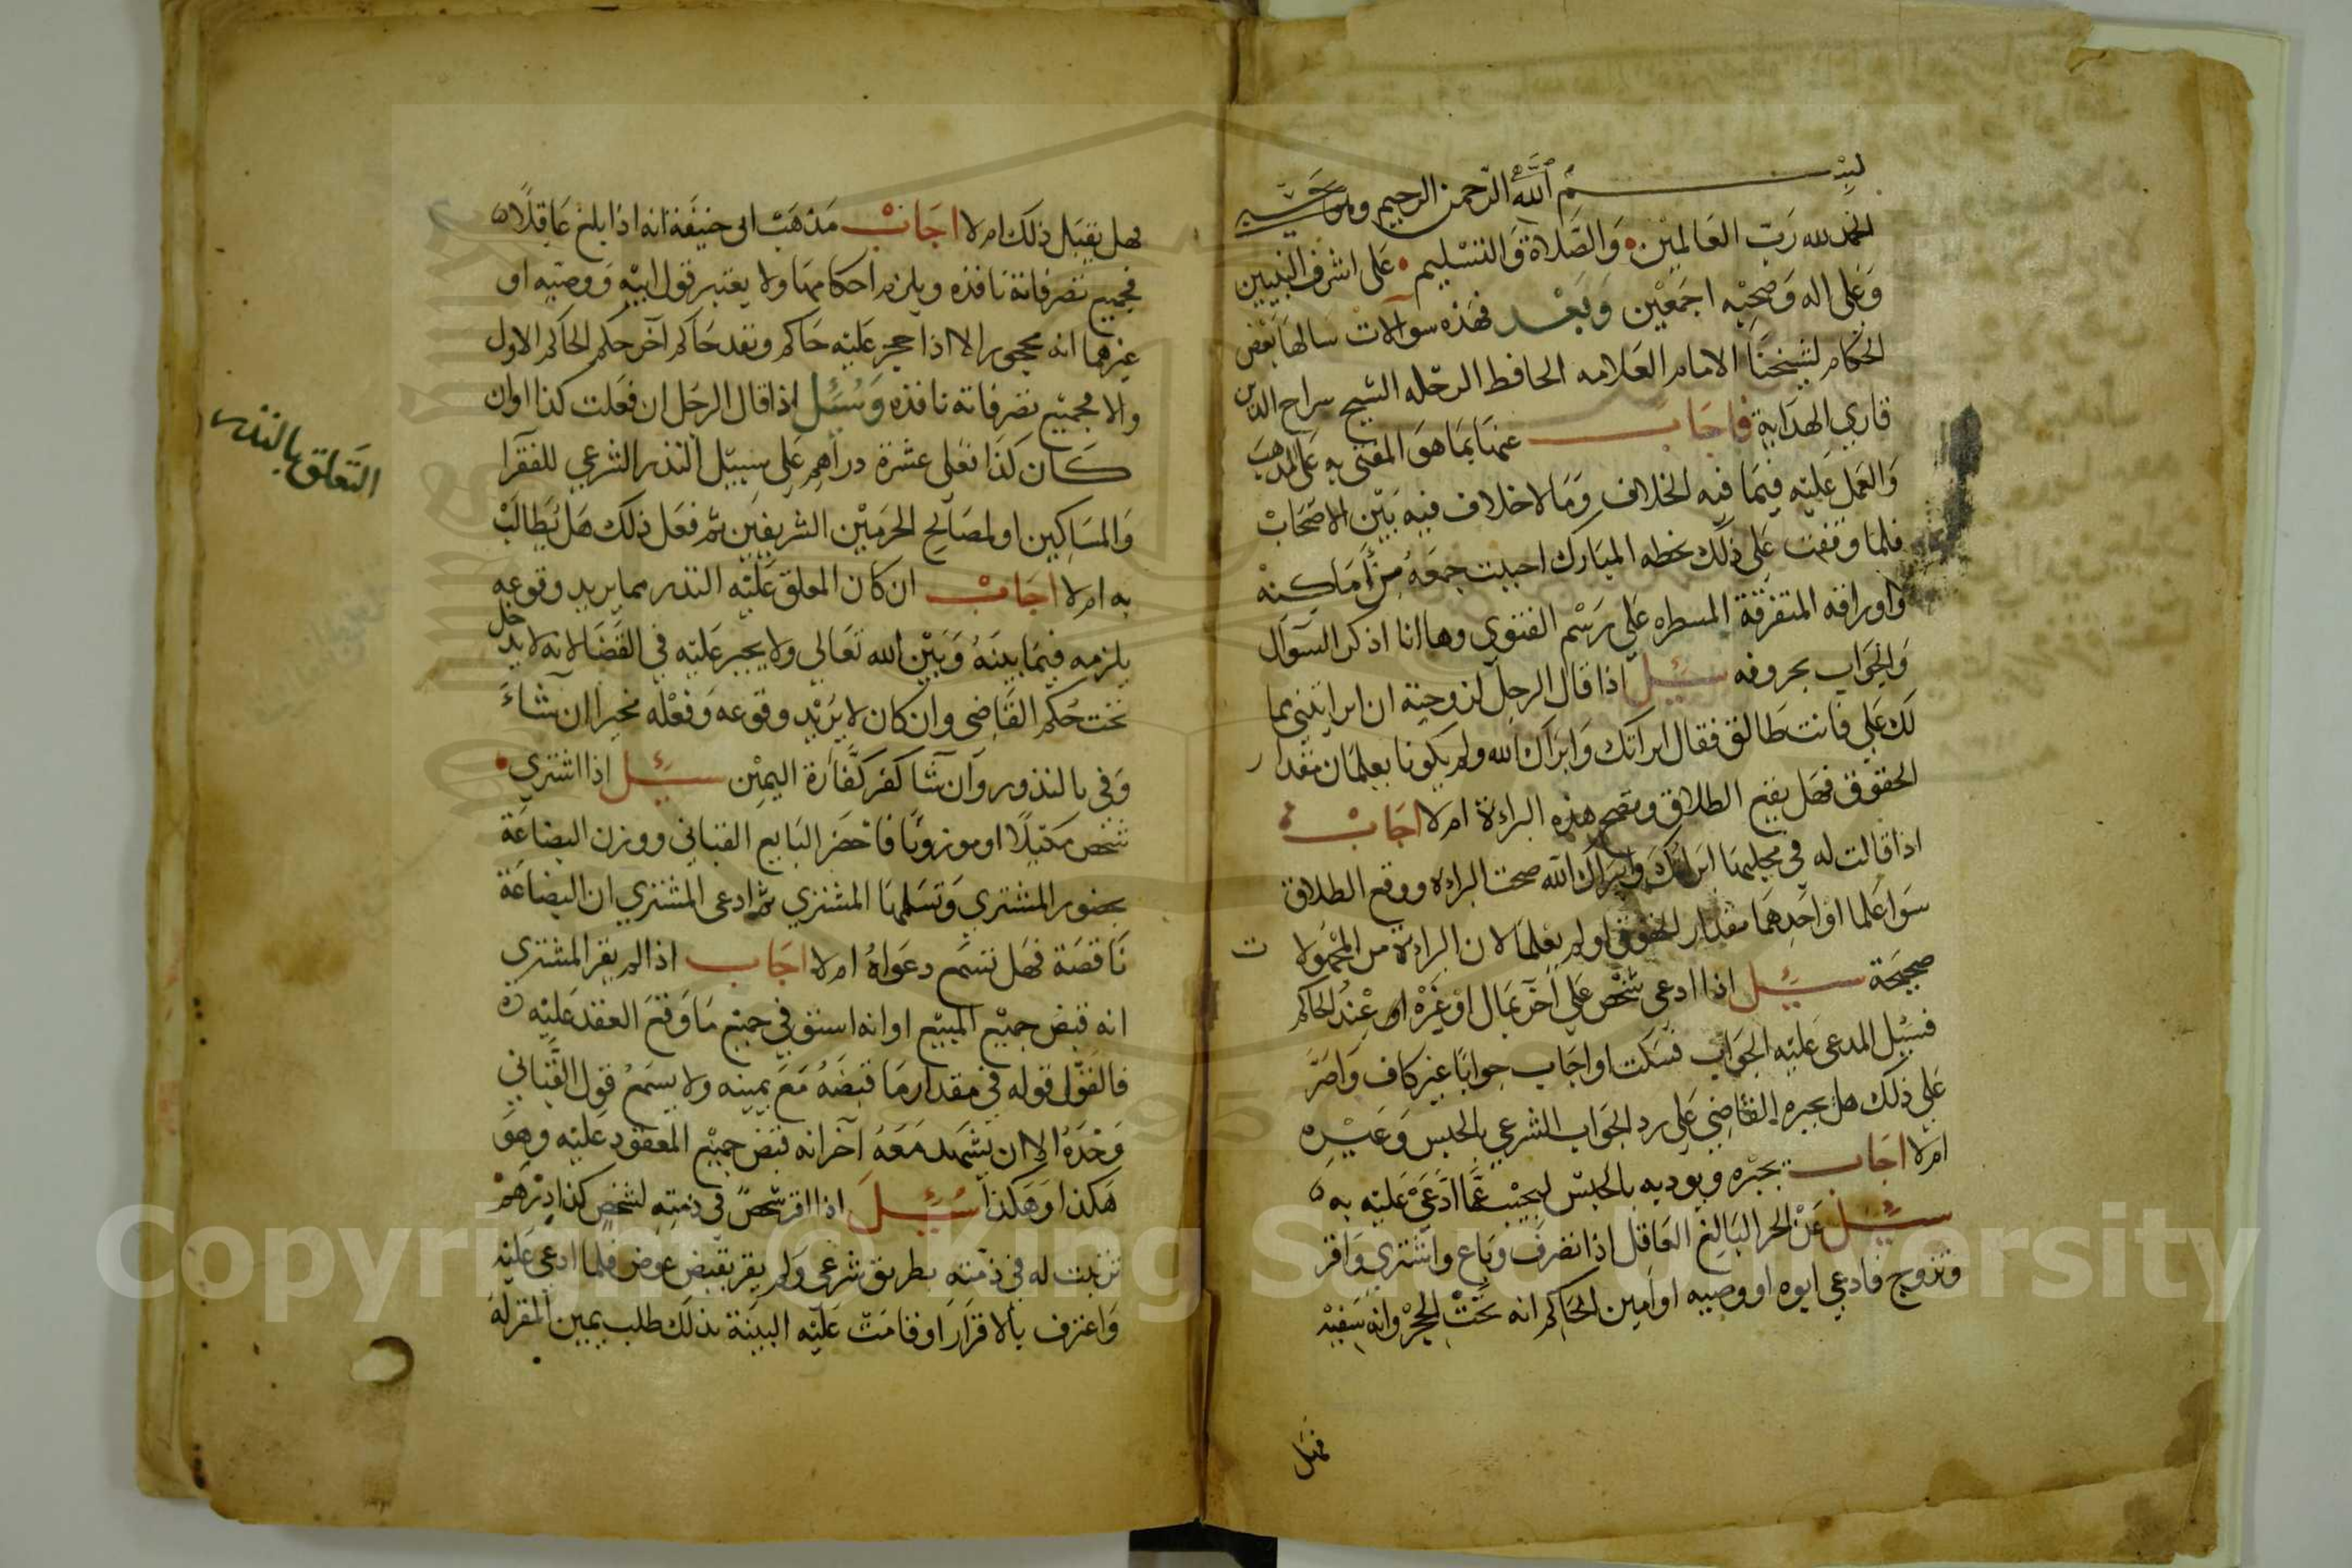 بسم الله الرحمن الرحيم وهو حسبي
الحمد لله رب العالمين والصلاة والتسليم على اشرف النبيين
وعلى اله وصحبه اجمعين وبعد فهذه سوآلات سالها بعض
الحكام لشيخنا الامام العلامه الحافظ الرحله الشيخ سراج الدين
قاري الهداية فاجاب عنها بما هو المفتى به على المذهب
والعمل عليه فيما فيه الخلاف وما لا خلاف فيه بين الاصحاب
فلما وقفت على ذلك بخطه المبارك احببت جمعه من أماكنه
واوراقه المتفرقة المسطره على رسم الفتوى وها انا اذكر السوآل
والجواب بحروفه سئل اذا قال الرجل لزوجته ان ابرايتني بما
لك علي فانت طالق فقال ابراتك وابراك الله ولم يكونا يعلمان مقدار
الحقوق فهل يقع الطلاق وتصح هذه البراءة ام لا اجاب
اذا قالت له في مجلسها ابراتك وابراك الله صحت البراءة ووقع الطلاق
سوا علما او احدهما مقدار الحقوق او لم يعلما لان البراءة من المجهولات
صحيحة سئل اذا ادعى شخص على آخر بمال او غيره عند الحاكم
فسيل المدعى عليه الجواب فسكت او اجاب جوابا غير كاف واصر
على ذلك هل يجبره القاضي على رد الجواب الشرعي بالحبس وغيره
ام لا اجاب يجبره ويوديه بالحبس ليجيب عما ادعى عليه به
سئل عن الحر البالغ العاقل اذا تصرف وباع واشترى واقر
وتزوج فادعى ابوه او وصيه او امين الحاكم انه تحت الحجر وانه سفيه
فهل
فهل يقبل ذلك ام لا اجاب مذهب ابى حنيفة انه اذا بلغ عاقلا
فجميع تصرفاته نافذه ويلزم احكامها ولا يعتبر قول ابيه ووصيه او
غيرهما انه محجور الا اذا حجر عليه حاكم ونفد حاكم آخر حكم الحاكم الاول
والا فجميع تصرفاته نافذه وسئل اذا قال الرجل ان فعلت كذا او ان
كان كذا فعلى عشرة دراهم على سبيل النذر الشرعي للفقرا
والمساكين او لمصالح الحرمين الشريفين ثم فعل ذلك هل يطالب
به ام لا اجاب ان كان المعلق عليه النذر مما يريد وقوعه
يلزمه فيما بينه وبين الله تعالى ولا يجبر عليه في القضا لانه لا يدخل
تحت حكم القاضي وان كان لا يريد وقوعه وفعله مخيرا ان شاء
وفى بالنذور وان شا كفر كفارة اليمين سئل اذا اشترى
شخص مكيلا او موزونا فاحضر البايع القباني ووزن البضاعة
بحضور المشتري وتسلمها المشتري ثم ادعى المشتري ان البضاعة
ناقصة فهل تسمع دعواه ام لا اجاب اذا لم يقر المشتري
انه قبض جميع المبيع او انه استوفى جميع ما وقع العقد عليه
فالقول قوله في مقدار ما قبضه مع يمينه ولا يسمع قول القباني
وحده الا ان يشهد معه آخر انه قبض جميع المعقود عليه وهو
هكذا وهكذا سئل اذا اقر شخص في ذمته لشخص كذا درهم
ترتبت له في ذمته بطريق شرعي ولم يقر بقبض عوض فلما ادعى عليه
واعترف بالاقرار او قامت عليه البينة بذلك طلب يمين المقر له
التعلق بالنذر
Copyright © King Saud University